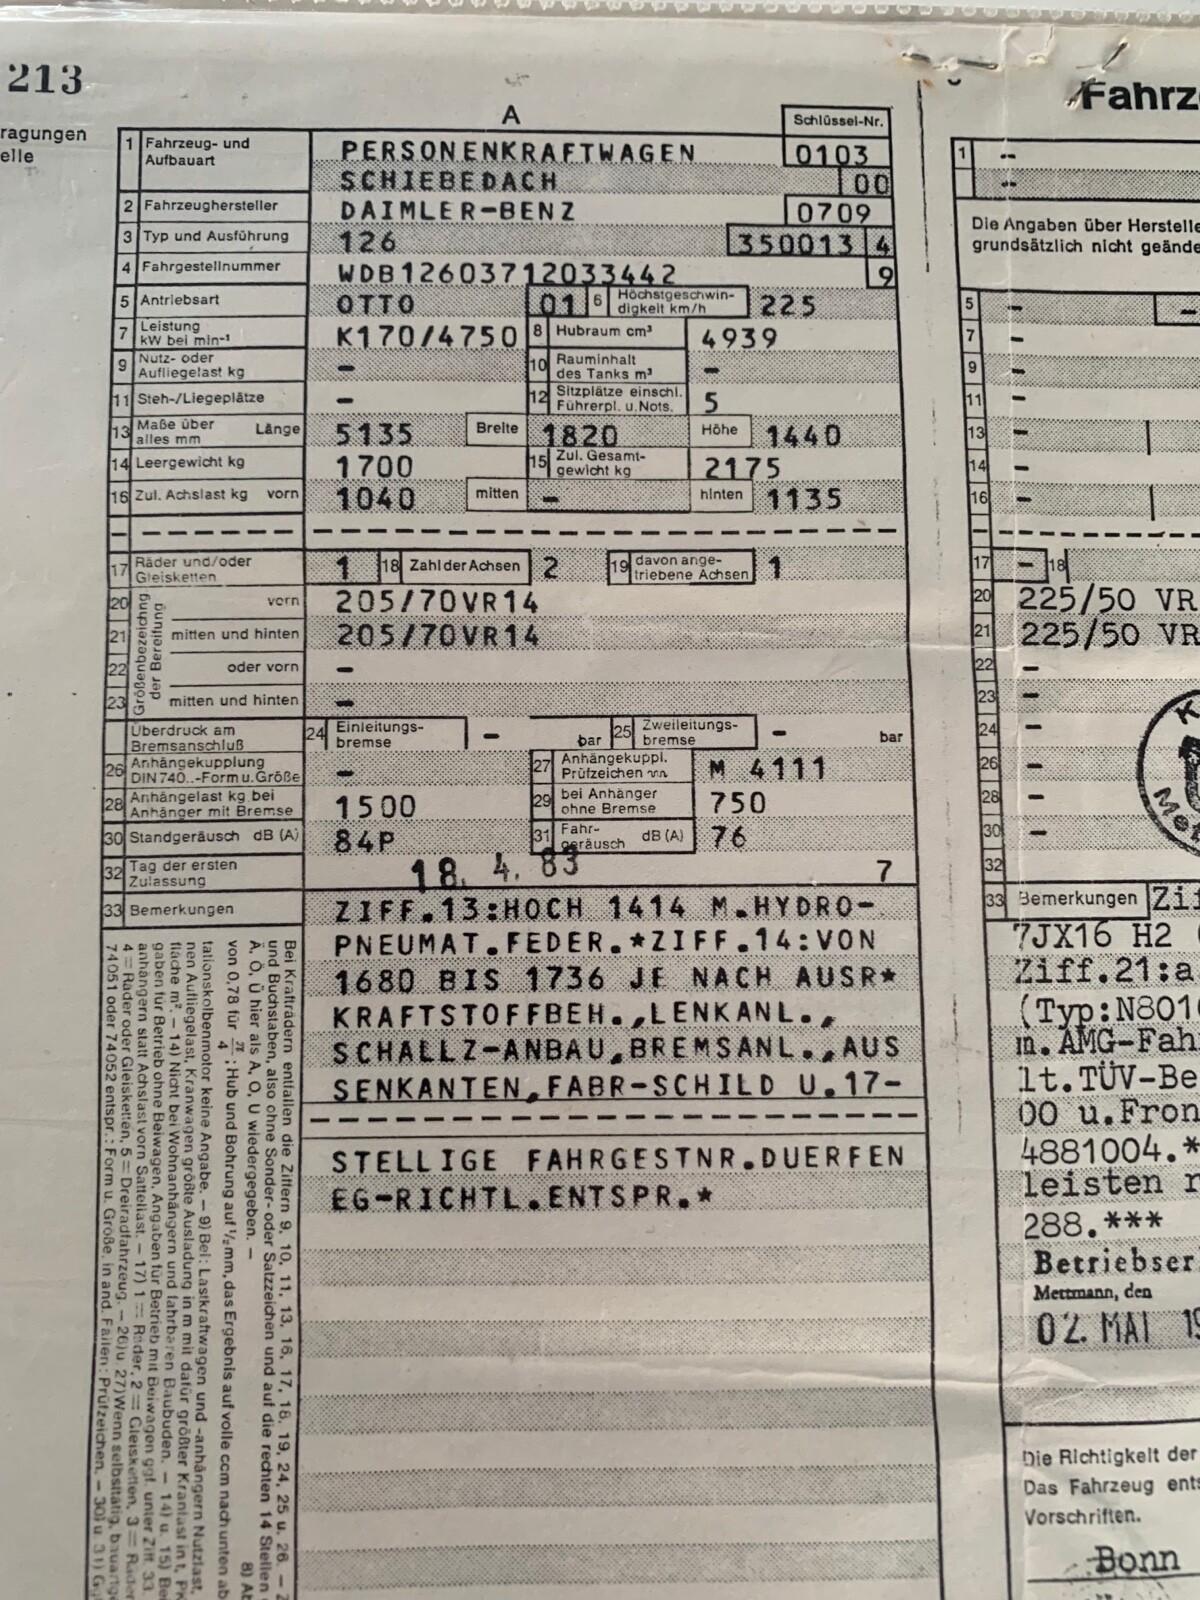 213
ragungen
elle
A
Schlüssel-Nr.
1 Fahrzeug- und Aufbauart PERSONENKRAFTWAGEN 0103
SCHIEBEDACH 00
2 Fahrzeughersteller DAIMLER-BENZ 0709
3 Typ und Ausführung 126 350013 4
4 Fahrgestellnummer WDB12603712033442 9
5 Antriebsart OTTO 01 6 Höchstgeschwin-digkeit km/h 225
7 Leistung kW bei min-¹ K170/4750 8 Hubraum cm³ 4939
9 Nutz- oder Aufliegelast kg – 10 Rauminhalt des Tanks m³ –
11 Steh-/Liegeplätze – 12 Sitzplätze einschl. Führerpl. u. Nots. 5
13 Maße über alles mm Länge 5135 Breite 1820 Höhe 1440
14 Leergewicht kg 1700 15 Zul. Gesamt-gewicht kg 2175
16 Zul. Achslast kg vorn 1040 mitten – hinten 1135
17 Räder und/oder Gleisketten 1 18 Zahl der Achsen 2 19 davon ange-triebene Achsen 1
Größenbezeichnung der Bereifung
20 vorn 205/70VR14
21 mitten und hinten 205/70VR14
22 oder vorn –
23 mitten und hinten –
Überdruck am Bremsanschluß 24 Einleitungs-bremse – bar 25 Zweileitungs-bremse – bar
26 Anhängekupplung DIN 740..-Form u. Größe – 27 Anhängekuppl. Prüfzeichen M 4111
28 Anhängelast kg bei Anhänger mit Bremse 1500 29 bei Anhänger ohne Bremse 750
30 Standgeräusch dB (A) 84P 31 Fahr-geräusch dB (A) 76
32 Tag der ersten Zulassung 18. 4. 83 7
33 Bemerkungen ZIFF.13:HOCH 1414 M.HYDRO-
PNEUMAT.FEDER.*ZIFF.14:VON
1680 BIS 1736 JE NACH AUSR*
KRAFTSTOFFBEH.,LENKANL.,
SCHALLZ-ANBAU,BREMSANL.,AUS
SENKANTEN,FABR-SCHILD U.17-
STELLIGE FAHRGESTNR.DUERFEN
EG-RICHTL.ENTSPR.*
Bei Krafträdern entfallen die Ziffern 9, 10, 11, 13, 16, 17, 18, 19, 24, 25 u. 26. –
und Buchstaben, also ohne Sonder- oder Satzzeichen und auf die rechten 14 Stellen
Ä, Ö, Ü hier als A, O, U wiedergegeben. –
8)
von 0,78 für π/4; Hub und Bohrung auf ½ mm, das Ergebnis auf volle ccm nach unten ab
tationskolbenmotor keine Angabe. – 9) Bei: Lastkraftwagen und -anhängern Nutzlast,
nen Aufliegelast, Kranwagen größte Ausladung in m mit dafür größter Kranlast in t,
fläche m². – 14) Nicht bei Wohnanhängern und fahrbaren Baubuden. – 14) u. 15) Bei
gaben für Betrieb ohne Beiwagen, Angaben für Betrieb mit Beiwagen ggf. unter Ziff. 33.
anhängern statt Achslast vorn Sattellast. – 17) 1 = Räder, 2 = Gleisketten, 3 = Räder
4 = Räder oder Gleisketten, 5 = Dreiradfahrzeug. – 26) u. 27) Wenn selbsttätig,
74051 oder 74052 entspr.: Form u. Größe, in and. Fällen: Prüfzeichen. – 30) u. 31)
Fahrz
1 --
--
Die Angaben über Herstelle
grundsätzlich nicht geände
5 –
7 –
9 –
11 –
13 –
14 –
16 –
17 – 18
20 225/50 VR
21 225/50 VR
22 –
23 –
24 –
26 –
28 –
30 –
32
K
Met
33 Bemerkungen Zif
7JX16 H2
Ziff.21:a
(Typ:N801
m.AMG-Fah
lt.TÜV-Be
00 u.Fron
4881004.*
leisten
288.***
Betriebser
Mettmann, den
02. MAI 19
Die Richtigkeit der
Das Fahrzeug ents
Vorschriften.
Bonn